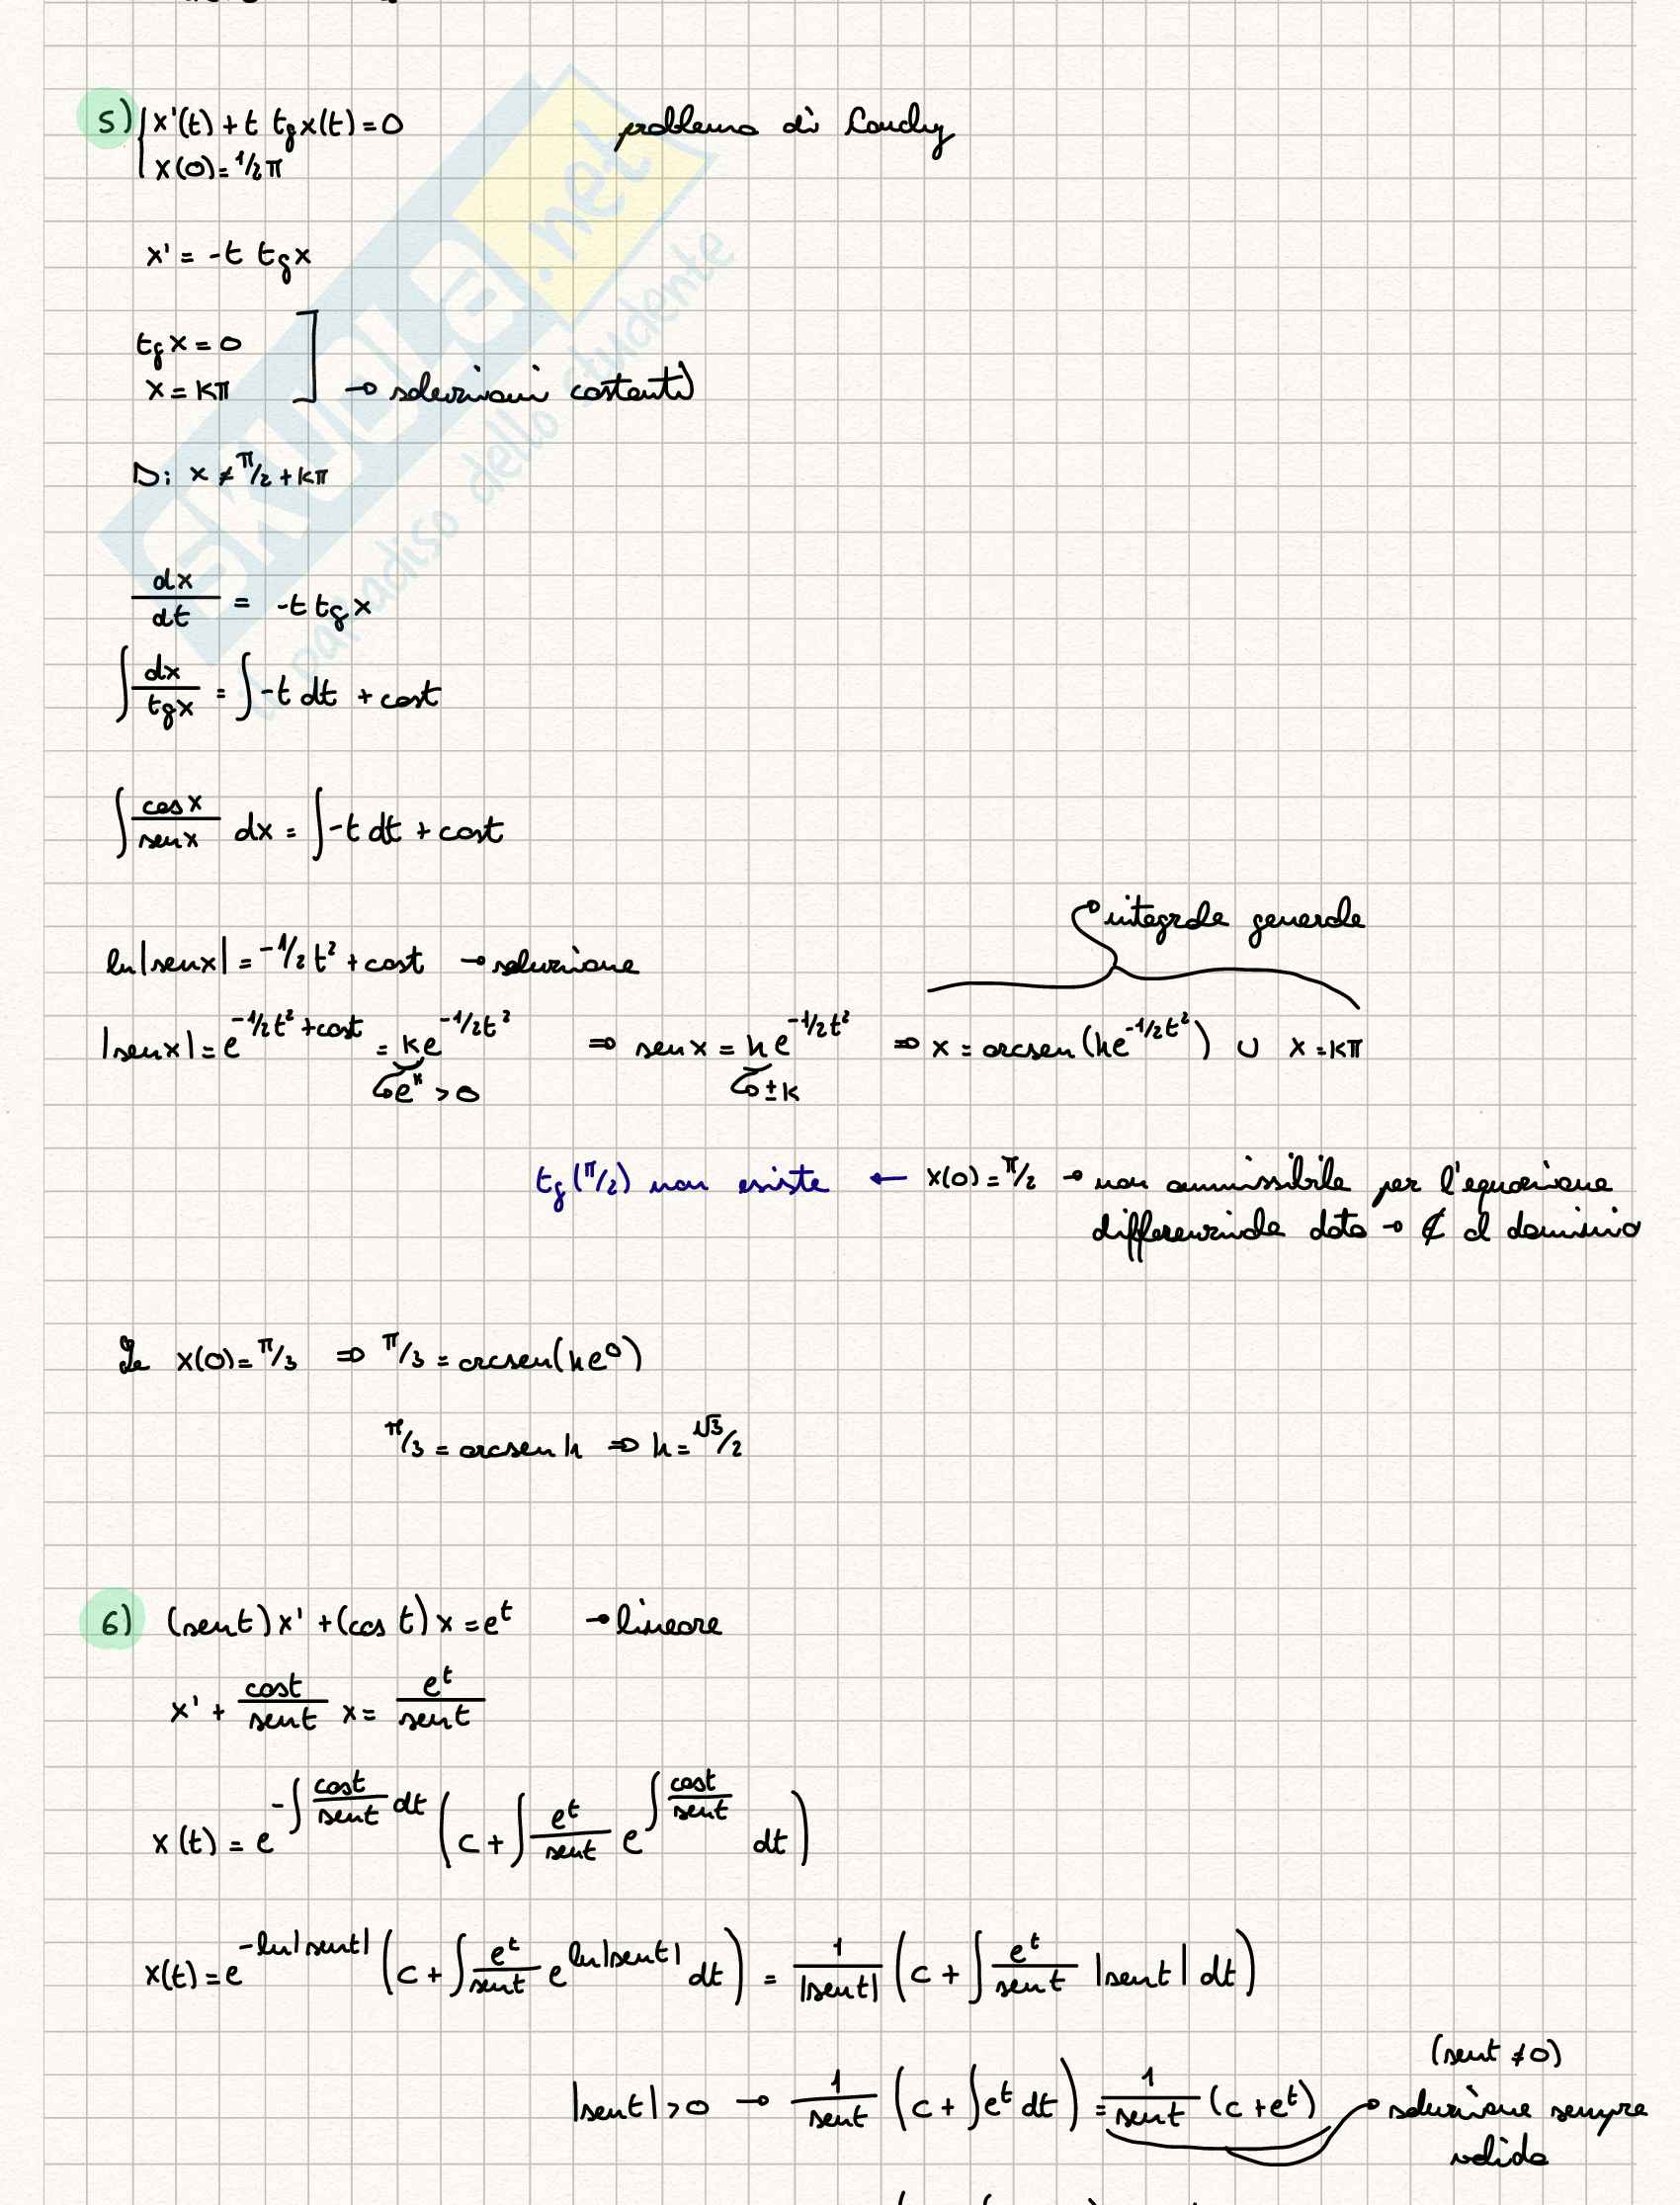 5) { x'(t) + t tg x(t) = 0 problema di Cauchy
x(0) = 1/2 π
x' = -t tg x
tg x = 0
x = kπ → soluzioni costanti
D: x ≠ π/2 + kπ
dx/dt = -t tg x
∫ dx/tg x = ∫ -t dt + cost
∫ cos x/sen x dx = ∫ -t dt + cost
integrale generale
ln|sen x| = -1/2 t² + cost → soluzione
|sen x| = e^(-1/2 t² + cost) = k e^(-1/2 t²) ⇒ sen x = h e^(-1/2 t²) ⇒ x = arcsen(h e^(-1/2 t²)) ∪ x = kπ
→ e^k > 0 → ±k
tg(π/2) non esiste ← x(0) = π/2 → non ammissibile per l'equazione
differenziale data → ∉ al dominio
Se x(0) = π/3 ⇒ π/3 = arcsen(h e⁰)
π/3 = arcsen h ⇒ h = √3/2
6) (sen t) x' + (cos t) x = e^t → lineare
x' + cos t/sen t x = e^t/sen t
x(t) = e^(-∫ cos t/sen t dt) (c + ∫ e^t/sen t e^(∫ cos t/sen t) dt)
x(t) = e^(-ln|sen t|) (c + ∫ e^t/sen t e^(ln|sen t|) dt) = 1/|sen t| (c + ∫ e^t/sen t |sen t| dt)
(sen t ≠ 0)
|sen t| > 0 → 1/sen t (c + ∫ e^t dt) = 1/sen t (c + e^t) → soluzione sempre
valida
SKUOLA.net
il paradiso dello studente